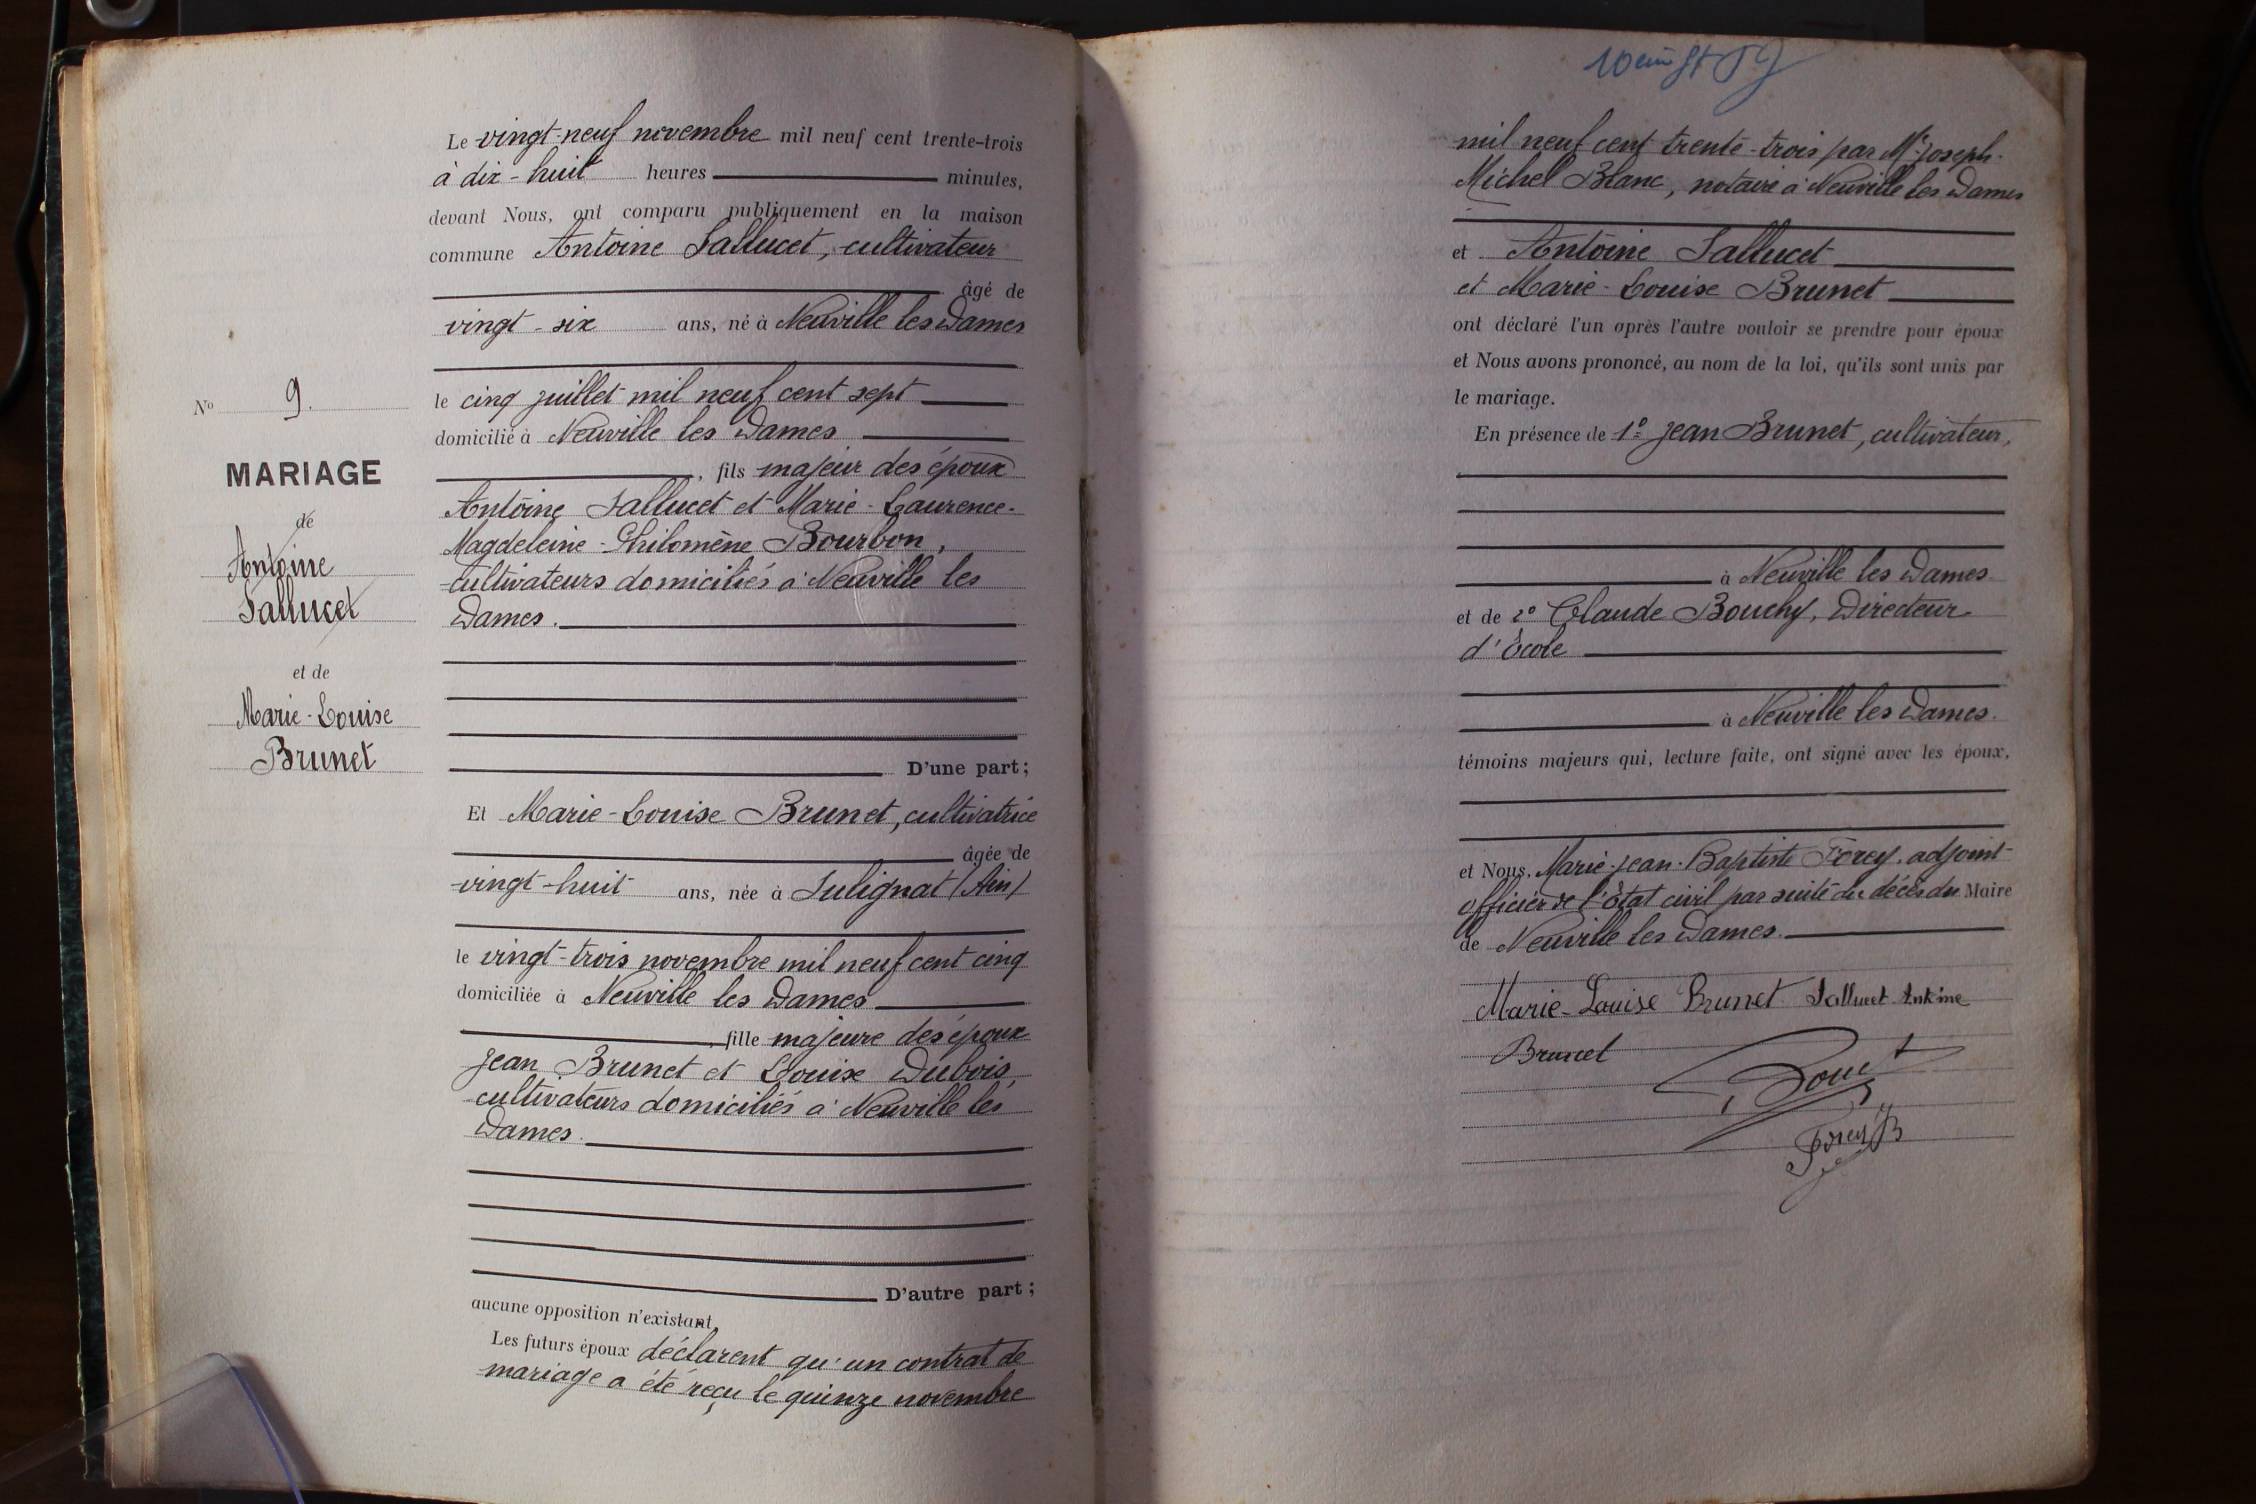 Le vingt-neuf novembre mil neuf cent trente-trois
à dix-huit heures minutes,
devant Nous, ont comparu publiquement en la maison
commune Antoine Sallucet, cultivateur
âgé de
vingt-six ans, né à Neuville les Dames
le cinq juillet mil neuf cent sept
domicilié à Neuville les Dames
, fils majeur des époux
Antoine Sallucet et Marie-Laurence-
Magdeleine-Philomène Bourbon,
cultivateurs domiciliés à Neuville les
Dames.
D'une part;
Et Marie-Louise Brunet, cultivatrice
âgée de
vingt-huit ans, née à Sulignat (Ain)
le vingt-trois novembre mil neuf cent cinq
domiciliée à Neuville les Dames
, fille majeure des époux
Jean Brunet et Louise Dubois,
cultivateurs domiciliés à Neuville les
Dames.
D'autre part;
aucune opposition n'existant,
Les futurs époux déclarent qu'un contrat de
mariage a été reçu le quinze novembre
No 9.
MARIAGE
de
Antoine
Sallucet
et de
Marie-Louise
Brunet
mil neuf cent trente-trois par Me Joseph-
Michel Blanc, notaire à Neuville les Dames
et Antoine Sallucet
et Marie-Louise Brunet
ont déclaré l'un après l'autre vouloir se prendre pour époux
et Nous avons prononcé, au nom de la loi, qu'ils sont unis par
le mariage.
En présence de 1º Jean Brunet, cultivateur,
à Neuville les Dames
et de 2º Claude Bouchy, Directeur
d'École
à Neuville les Dames.
témoins majeurs qui, lecture faite, ont signé avec les époux,
et Nous, Marie-Jean-Baptiste Forey, adjoint
officier de l'État civil par suite du décès du Maire
de Neuville les Dames.
Marie-Louise Brunet Sallucet Antoine
Brunet
Forey JB